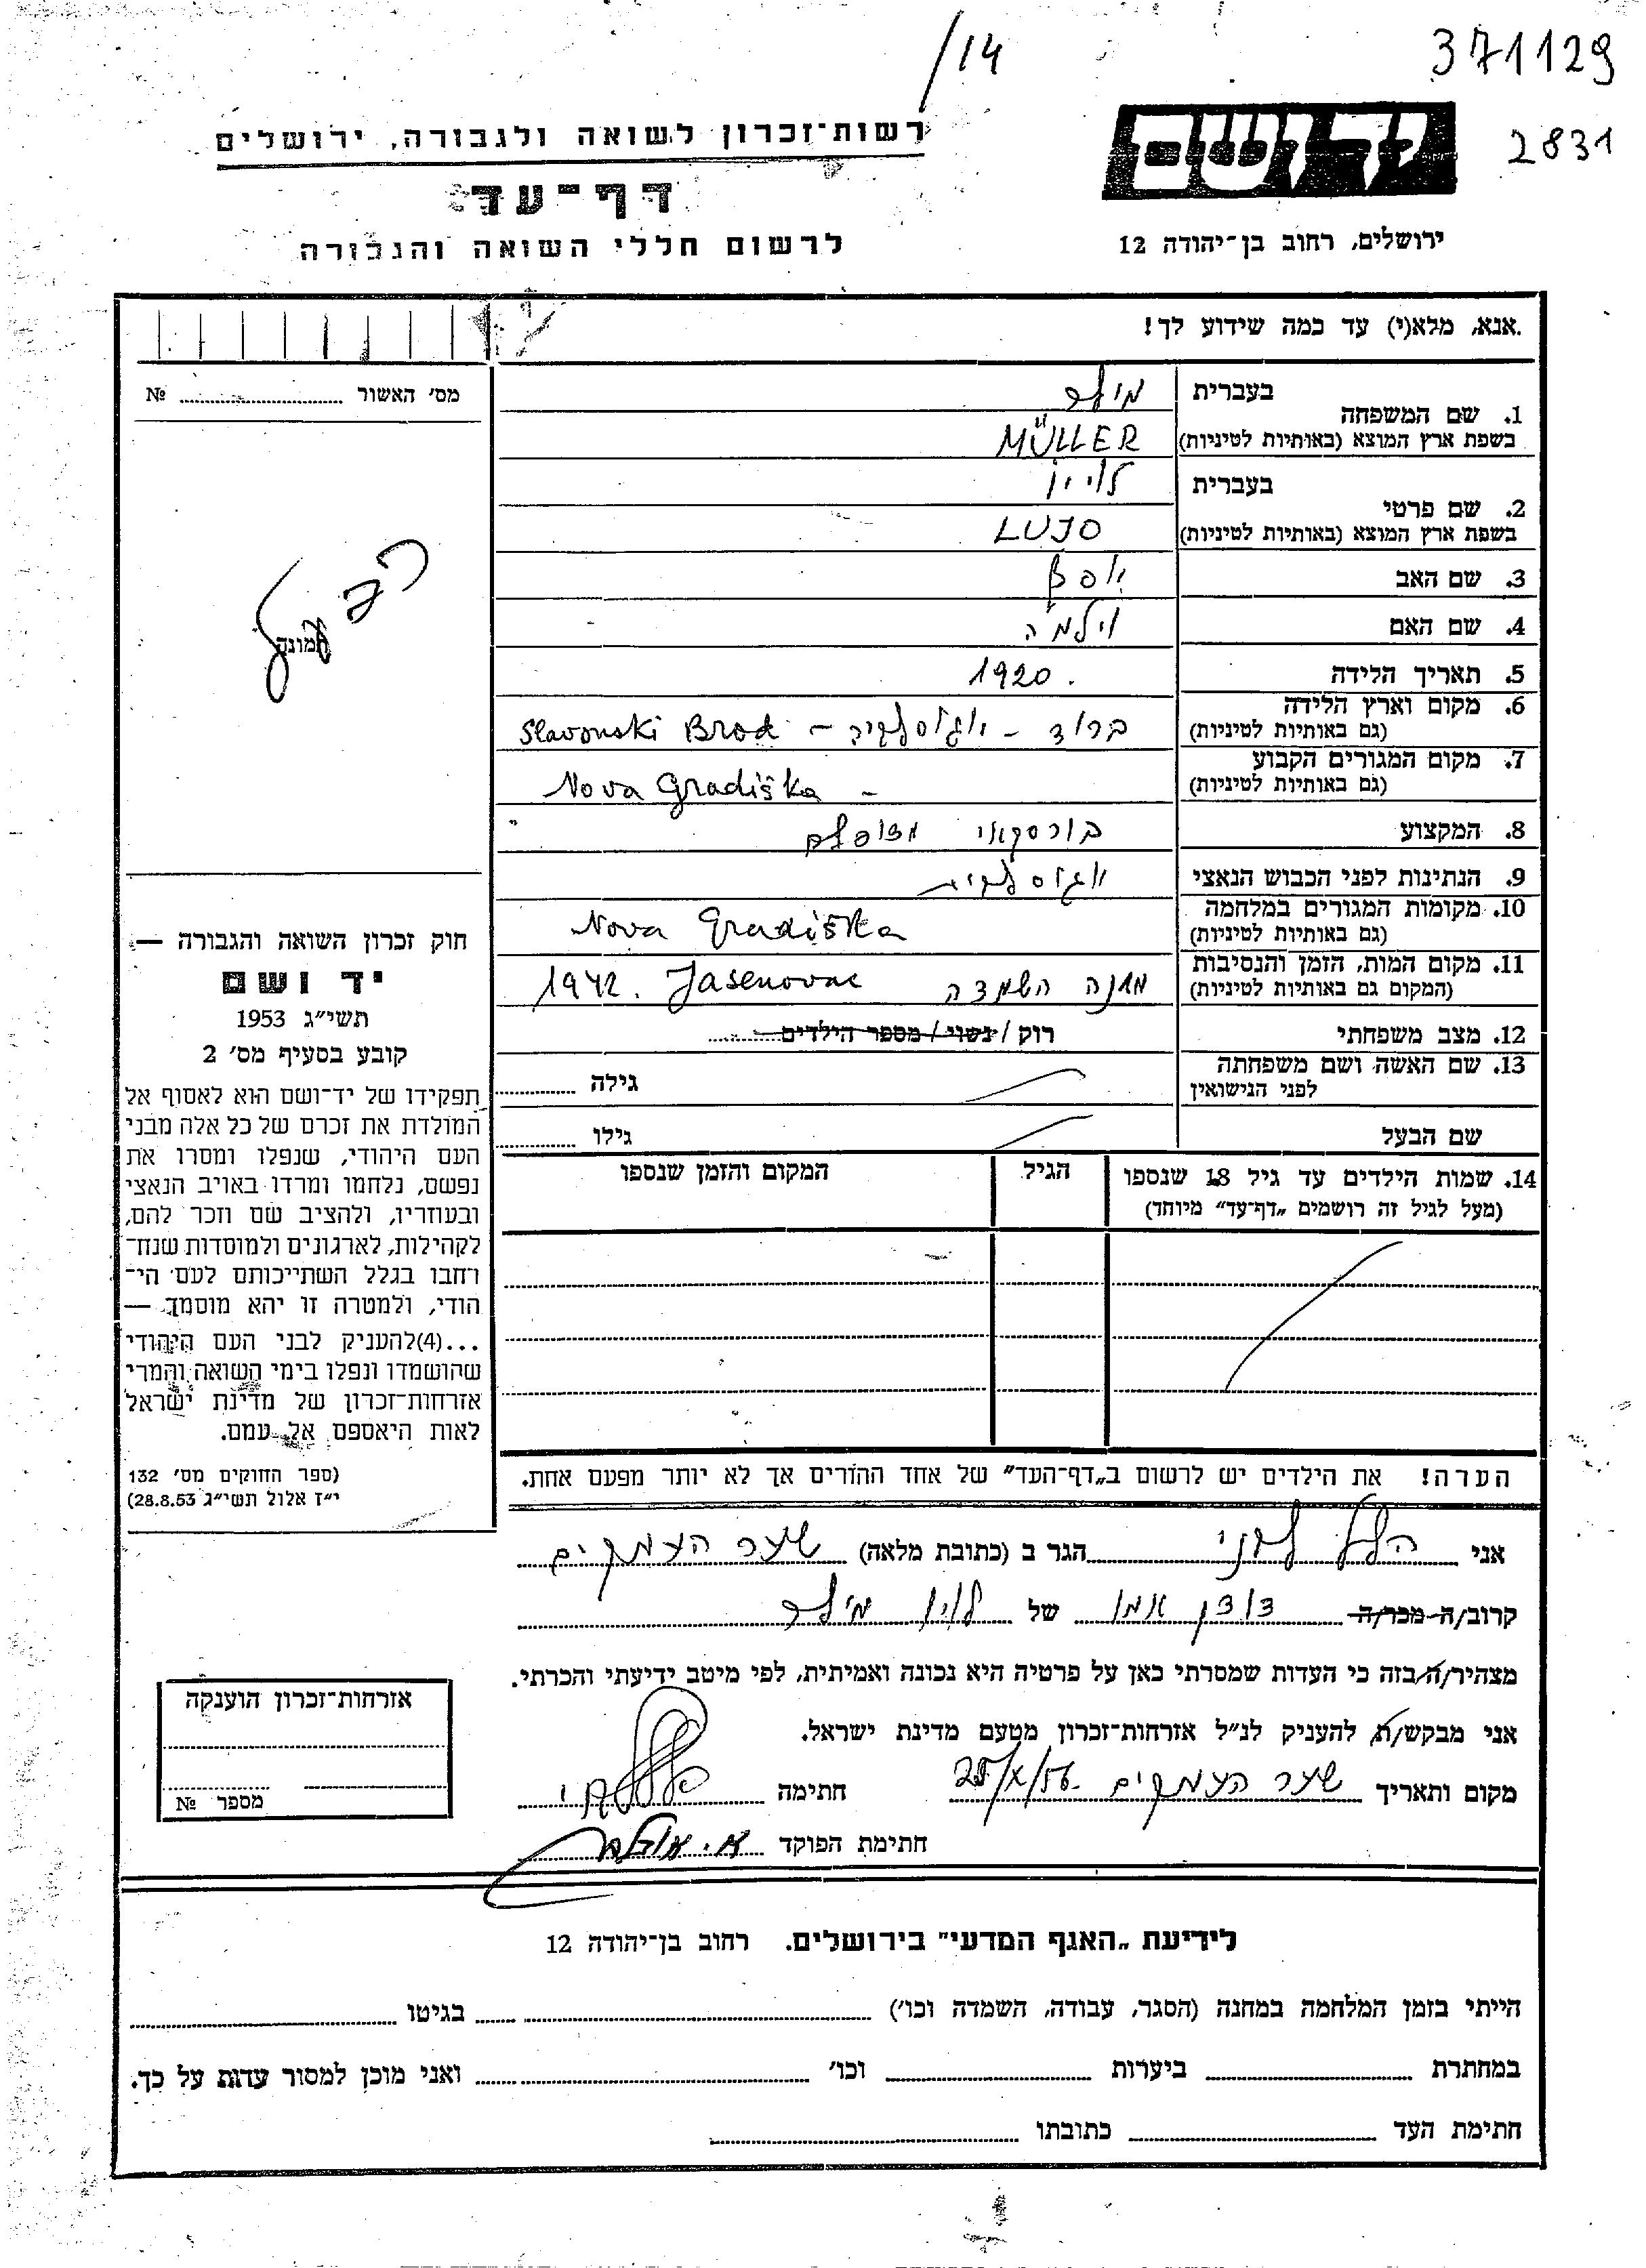 /14
371129
2831
יד ושם
ירושלים, רחוב בן־יהודה 12
רשות־זכרון לשואה ולגבורה, ירושלים
דף־עד
לרשום חללי השואה והגבורה
אנא, מלא(י) עד כמה שידוע לך!
מס׳ האשור № 
תמונה
1. שם המשפחה
בעברית מילר
בשפת ארץ המוצא (באותיות לטיניות) MÜLLER
2. שם פרטי
בעברית לויו
בשפת ארץ המוצא (באותיות לטיניות) LUJO
3. שם האב
4. שם האם וילמה
5. תאריך הלידה 1920.
6. מקום וארץ הלידה
(גם באותיות לטיניות) ברוד - יוגוסלביה - Slavonski Brod
7. מקום המגורים הקבוע
(גם באותיות לטיניות) - Nova Gradiška
8. המקצוע בורסקאי
9. הנתינות לפני הכבוש הנאצי יוגוסלבית
10. מקומות המגורים במלחמה
(גם באותיות לטיניות) Nova Gradiška
11. מקום המות, הזמן והנסיבות
(המקום גם באותיות לטיניות) מחנה השמדה Jasenovac 1942.
12. מצב משפחתי רוק / נשוי / מספר הילדים
13. שם האשה ושם משפחתה
לפני הנישואין
גילה
שם הבעל גילו
14. שמות הילדים עד גיל 18 שנספו
(מעל לגיל זה רושמים „דף־עד״ מיוחד)
הגיל
המקום והזמן שנספו
חוק זכרון השואה והגבורה —
יד ושם
תשי״ג 1953
קובע בסעיף מס׳ 2
תפקידו של יד־ושם הוא לאסוף אל
המולדת את זכרם של כל אלה מבני
העם היהודי, שנפלו ומסרו את
נפשם, נלחמו ומרדו באויב הנאצי
ובעוזריו, ולהציב שם וזכר להם,
לקהילות, לארגונים ולמוסדות שנח־
רחבו בגלל השתייכותם לעם הי־
הודי, ולמטרה זו יהא מוסמך —
...(4)להעניק לבני העם היהודי
שהושמדו ונפלו בימי השואה והמרי
אזרחות־זכרון של מדינת ישראל
לאות היאספם אל עמם.
(ספר החוקים מס׳ 132
י״ז אלול תשי״ג 28.8.53)
הערה! את הילדים יש לרשום ב„דף־העד״ של אחד ההורים אך לא יותר מפעם אחת.
אני הלל הגר ב (כתובת מלאה) שער העמקים
קרוב/ה מכר/ה דודן אמו של לויו מילר
מצהיר/ה בזה כי העדות שמסרתי כאן על פרטיה היא נכונה ואמיתית, לפי מיטב ידיעתי והכרתי.
אני מבקש/ת להעניק לנ״ל אזרחות־זכרון מטעם מדינת ישראל.
מקום ותאריך שער העמקים 25/X/56 חתימה
חתימת הפוקד
אזרחות־זכרון הוענקה
מספר №
לידיעת „האגף המדעי״ בירושלים. רחוב בן־יהודה 12
הייתי בזמן המלחמה במחנה (הסגר, עבודה, השמדה וכו׳) בגיטו
במחתרת ביערות וכו׳ ואני מוכן למסור עדות על כך.
חתימת העד כתובתו